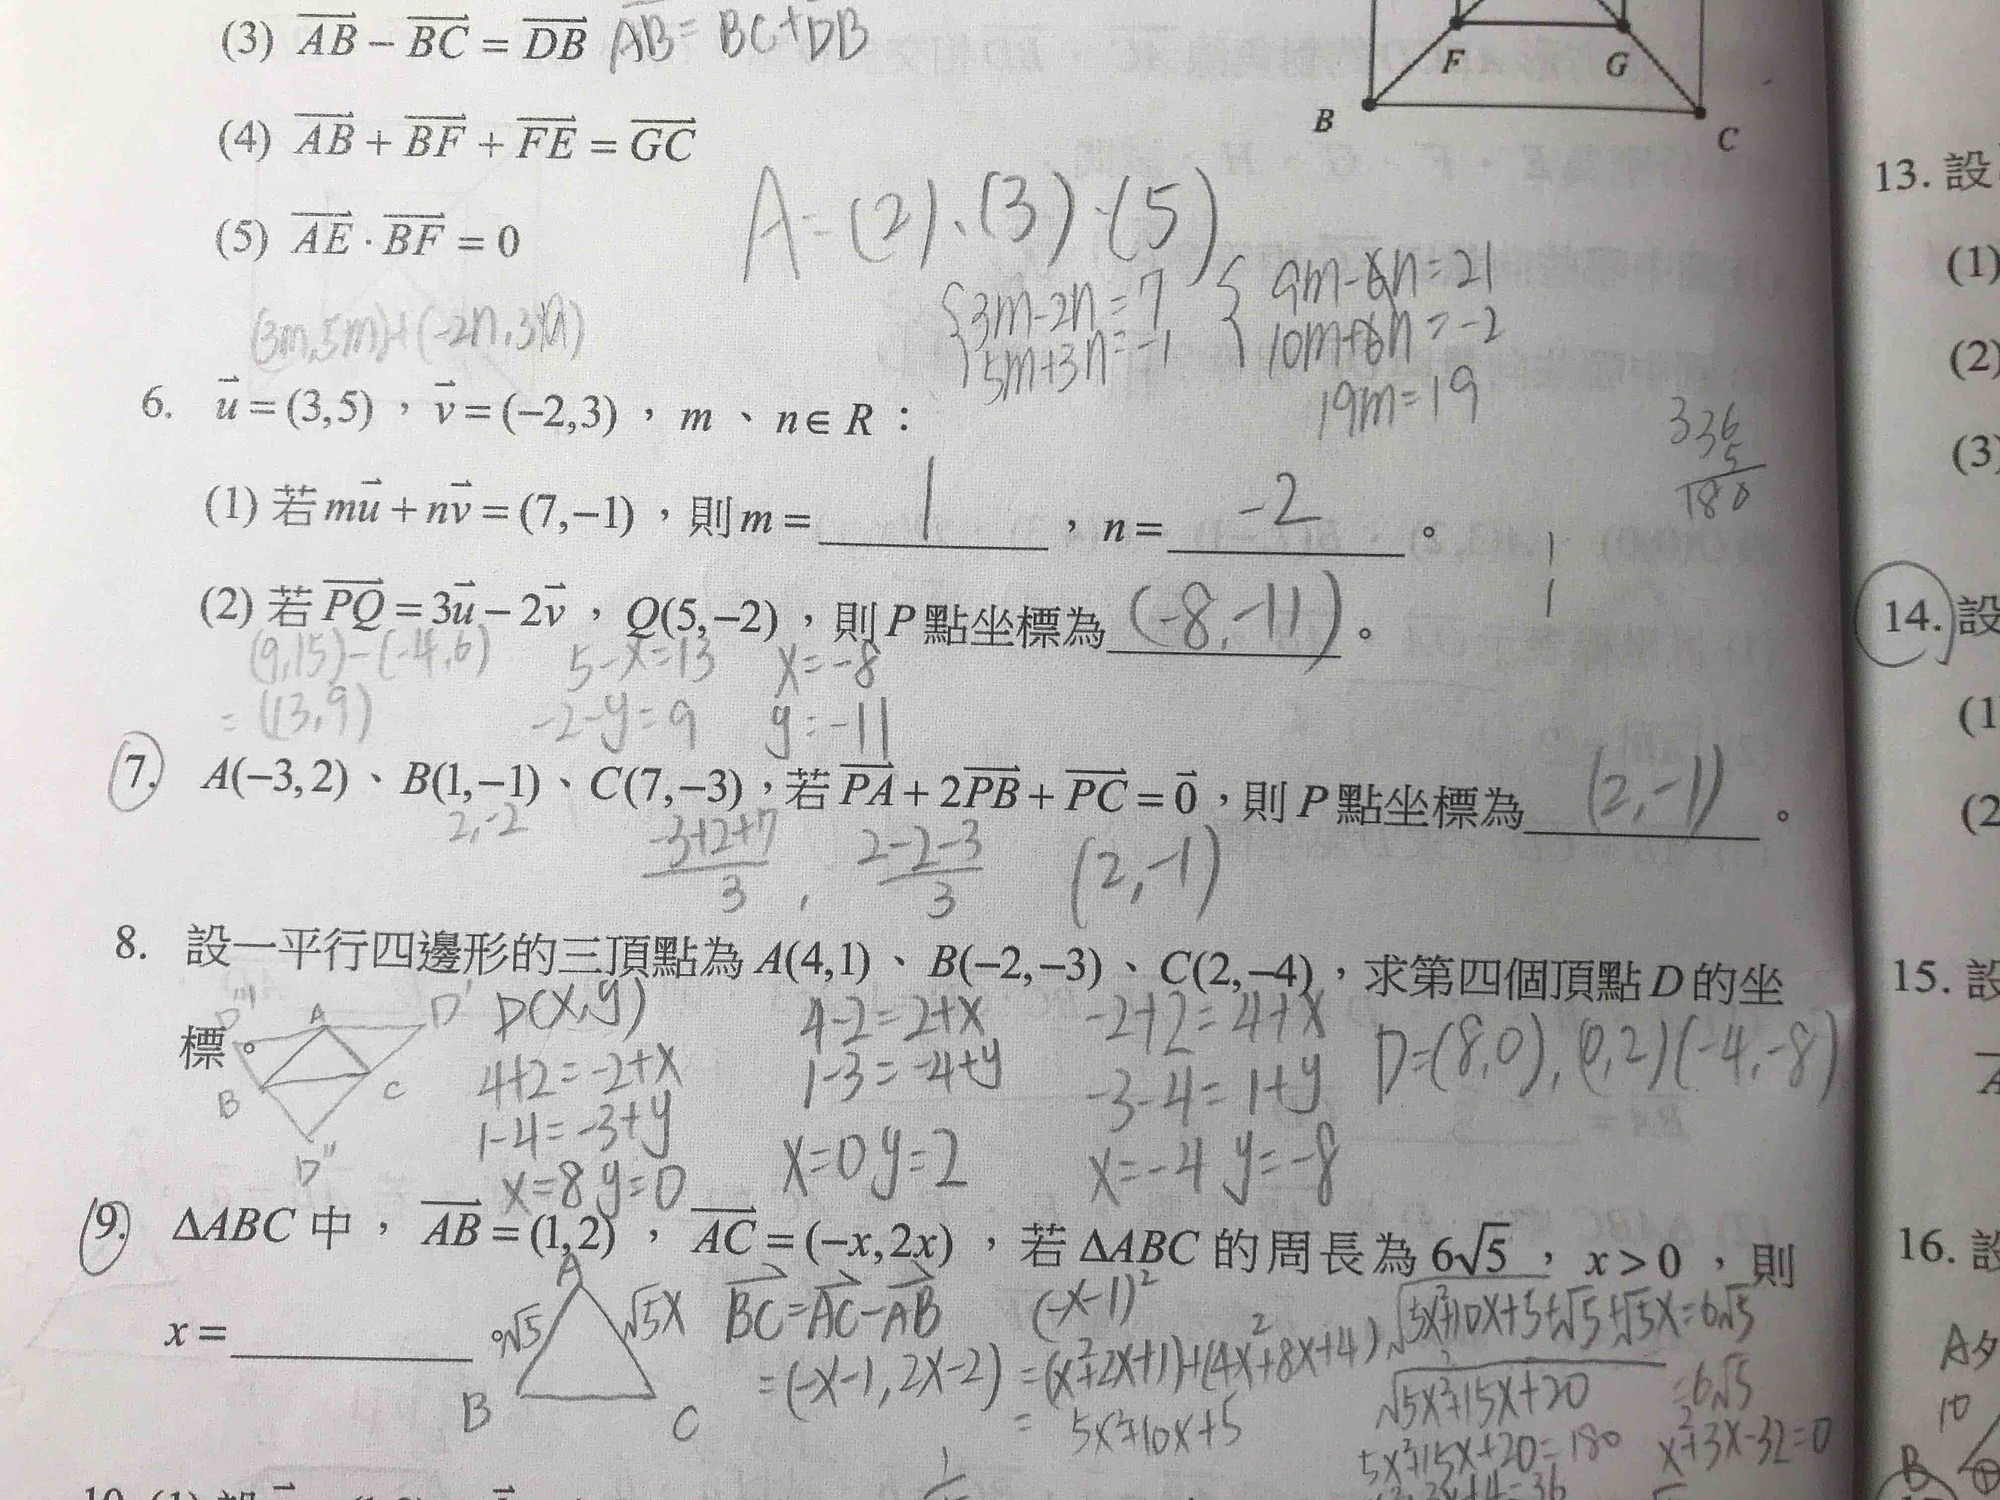 (3) AB − BC = DB AB = BC + DB
F G
B C
(4) AB + BF + FE = GC
A = (2)、(3)、(5)
(5) AE · BF = 0
13. 設
(1)
3m-2n=7
5m+3n=-1
9m-6n=21
10m+6n=-2
19m=19
(3m,5m)+(-2n,3n)
(2)
6. u = (3,5) ， v = (−2,3) ， m 、 n ∈ R：
336
5
180
(3)
(1) 若 mu + nv = (7,−1) ，則 m = 1 ， n = -2 。
(2) 若 PQ = 3u − 2v ， Q(5,−2) ，則 P 點坐標為 (-8,-11) 。
14. 設
(9,15)-(-4,6) 5-x=13 x=-8
=(13,9) -2-y=9 y=-11
(1
7. A(−3,2) 、 B(1,−1) 、 C(7,−3)，若 PA + 2PB + PC = 0，則 P 點坐標為 (2,-1) 。
(2
2,-2
-3+2+7
3
,
2-2-3
3
(2,-1)
8. 設一平行四邊形的三頂點為 A(4,1) 、 B(−2,−3) 、 C(2,−4)，求第四個頂點 D 的坐
標。
15. 設
D''' A D'
B C
D''
D(x,y)
4+2=-2+x
1-4=-3+y
x=8 y=0
4-2=2+x
1-3=-4+y
x=0 y=2
-2+2=4+x
-3-4=1+y
x=-4 y=-8
D=(8,0),(0,2)(-4,-8)
9. ΔABC 中， AB = (1,2) ， AC = (−x,2x) ，若 ΔABC 的周長為 6√5 ， x > 0 ，則
x =
16. 設
A
√5 √5x
B C
BC=AC-AB
=(-x-1,2x-2)
(-x-1)²
=(x²+2x+1)+(4x²+8x+4)
=5x²+10x+5
√5x²+10x+5+√5+√5x=6√5
√5x²+15x+20=6√5
5x²+15x+20=180
x²+3x-32=0
A夕
10
B